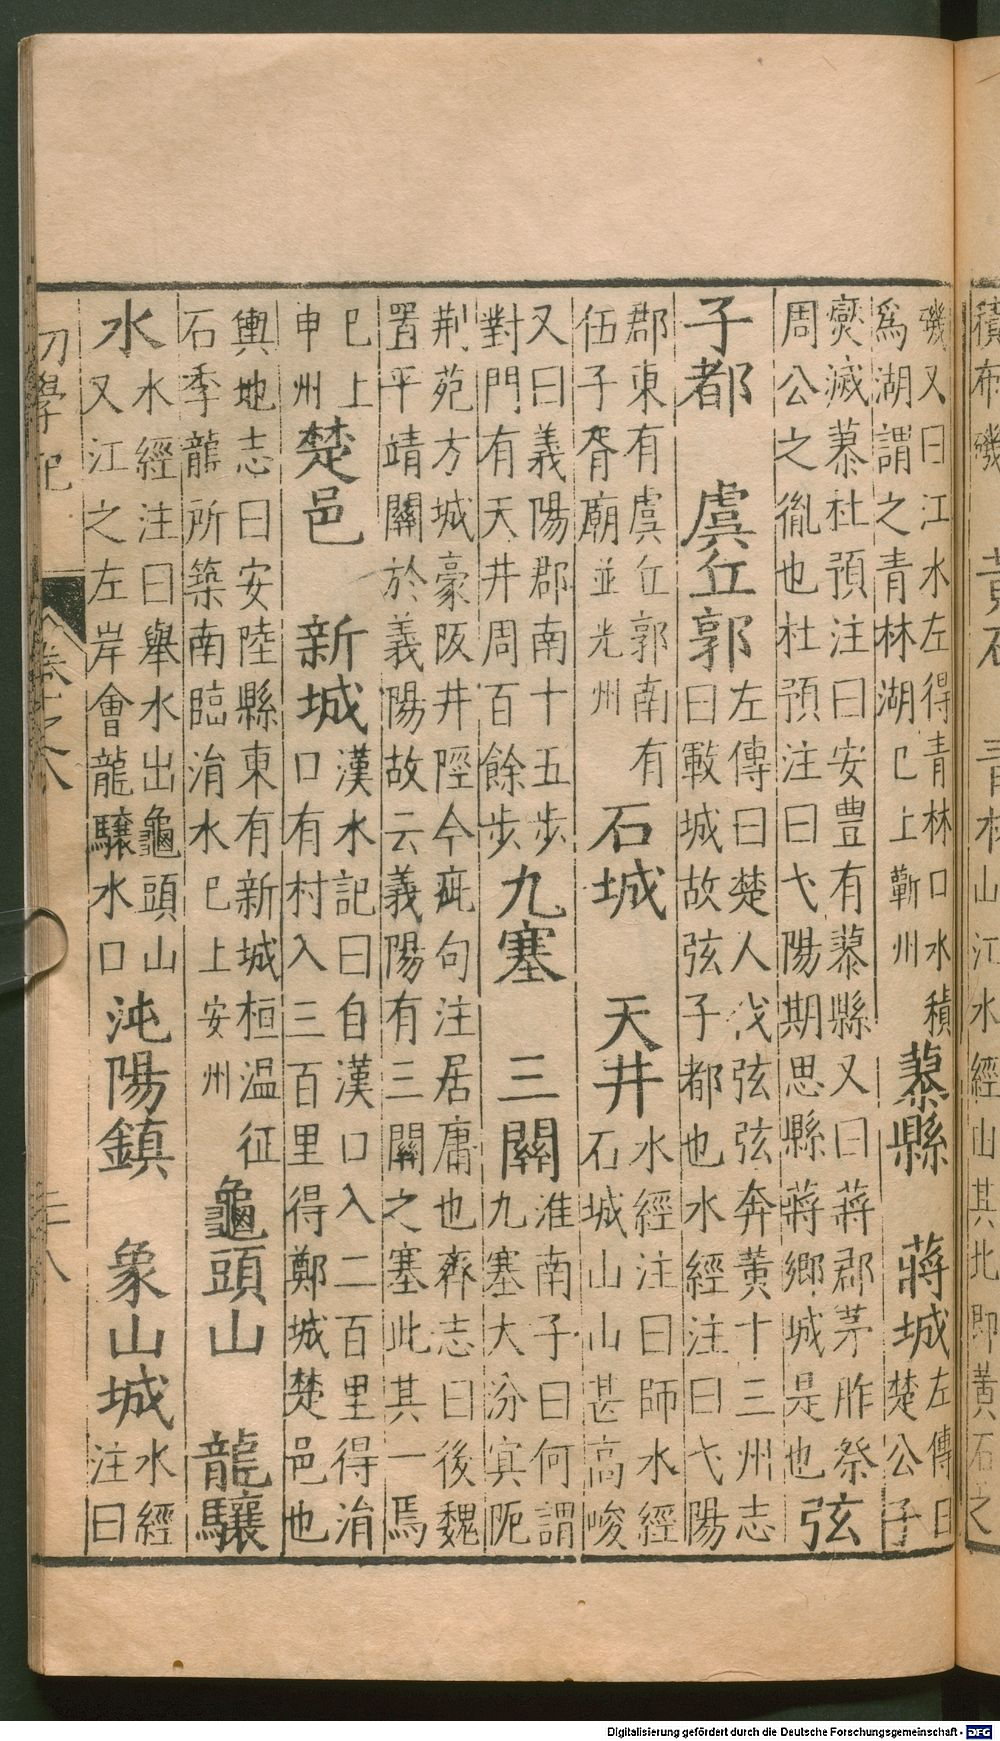 積布磯 黄石 青林山 江水經山其北即黄石之
磯又曰江水左得青林口水積
爲湖謂之青林湖巳上蘄州
蓼縣 蔣城
左傳曰
楚公子
爕滅蓼杜預注曰安豊有蓼縣又曰蔣郡茅胙祭
周公之胤也杜預注曰弋陽期思縣蔣鄉城是也
弦
子都 虞丘郭
左傳曰楚人伐弦弦奔黄十三州志
曰斁城故弦子都也水經注曰弋陽
郡東有虞丘郭南有
伍子胥廟並光州
石城 天井
水經注曰師水經
石城山山甚高峻
又曰義陽郡南十五步
對門有天井周百餘步
九塞 三關
淮南子曰何謂
九塞大汾冥阨
荆苑方城豪阪井陘令疵句注居庸也齊志曰後魏
置平靖關於義陽故云義陽有三關之塞此其一焉
巳上
申州
楚邑 新城
漢水記曰自漢口入二百里得涓
口有村入三百里得鄭城楚邑也
輿地志曰安陸縣東有新城桓温征
石季龍所築南臨涓水巳上安州
龜頭山 龍驤
水
水經注曰舉水出龜頭山
又江之左岸會龍驤水口
沌陽鎮 象山城
水經
注曰
初學記 卷之八 十八
Digitalisierung gefördert durch die Deutsche Forschungsgemeinschaft - DFG